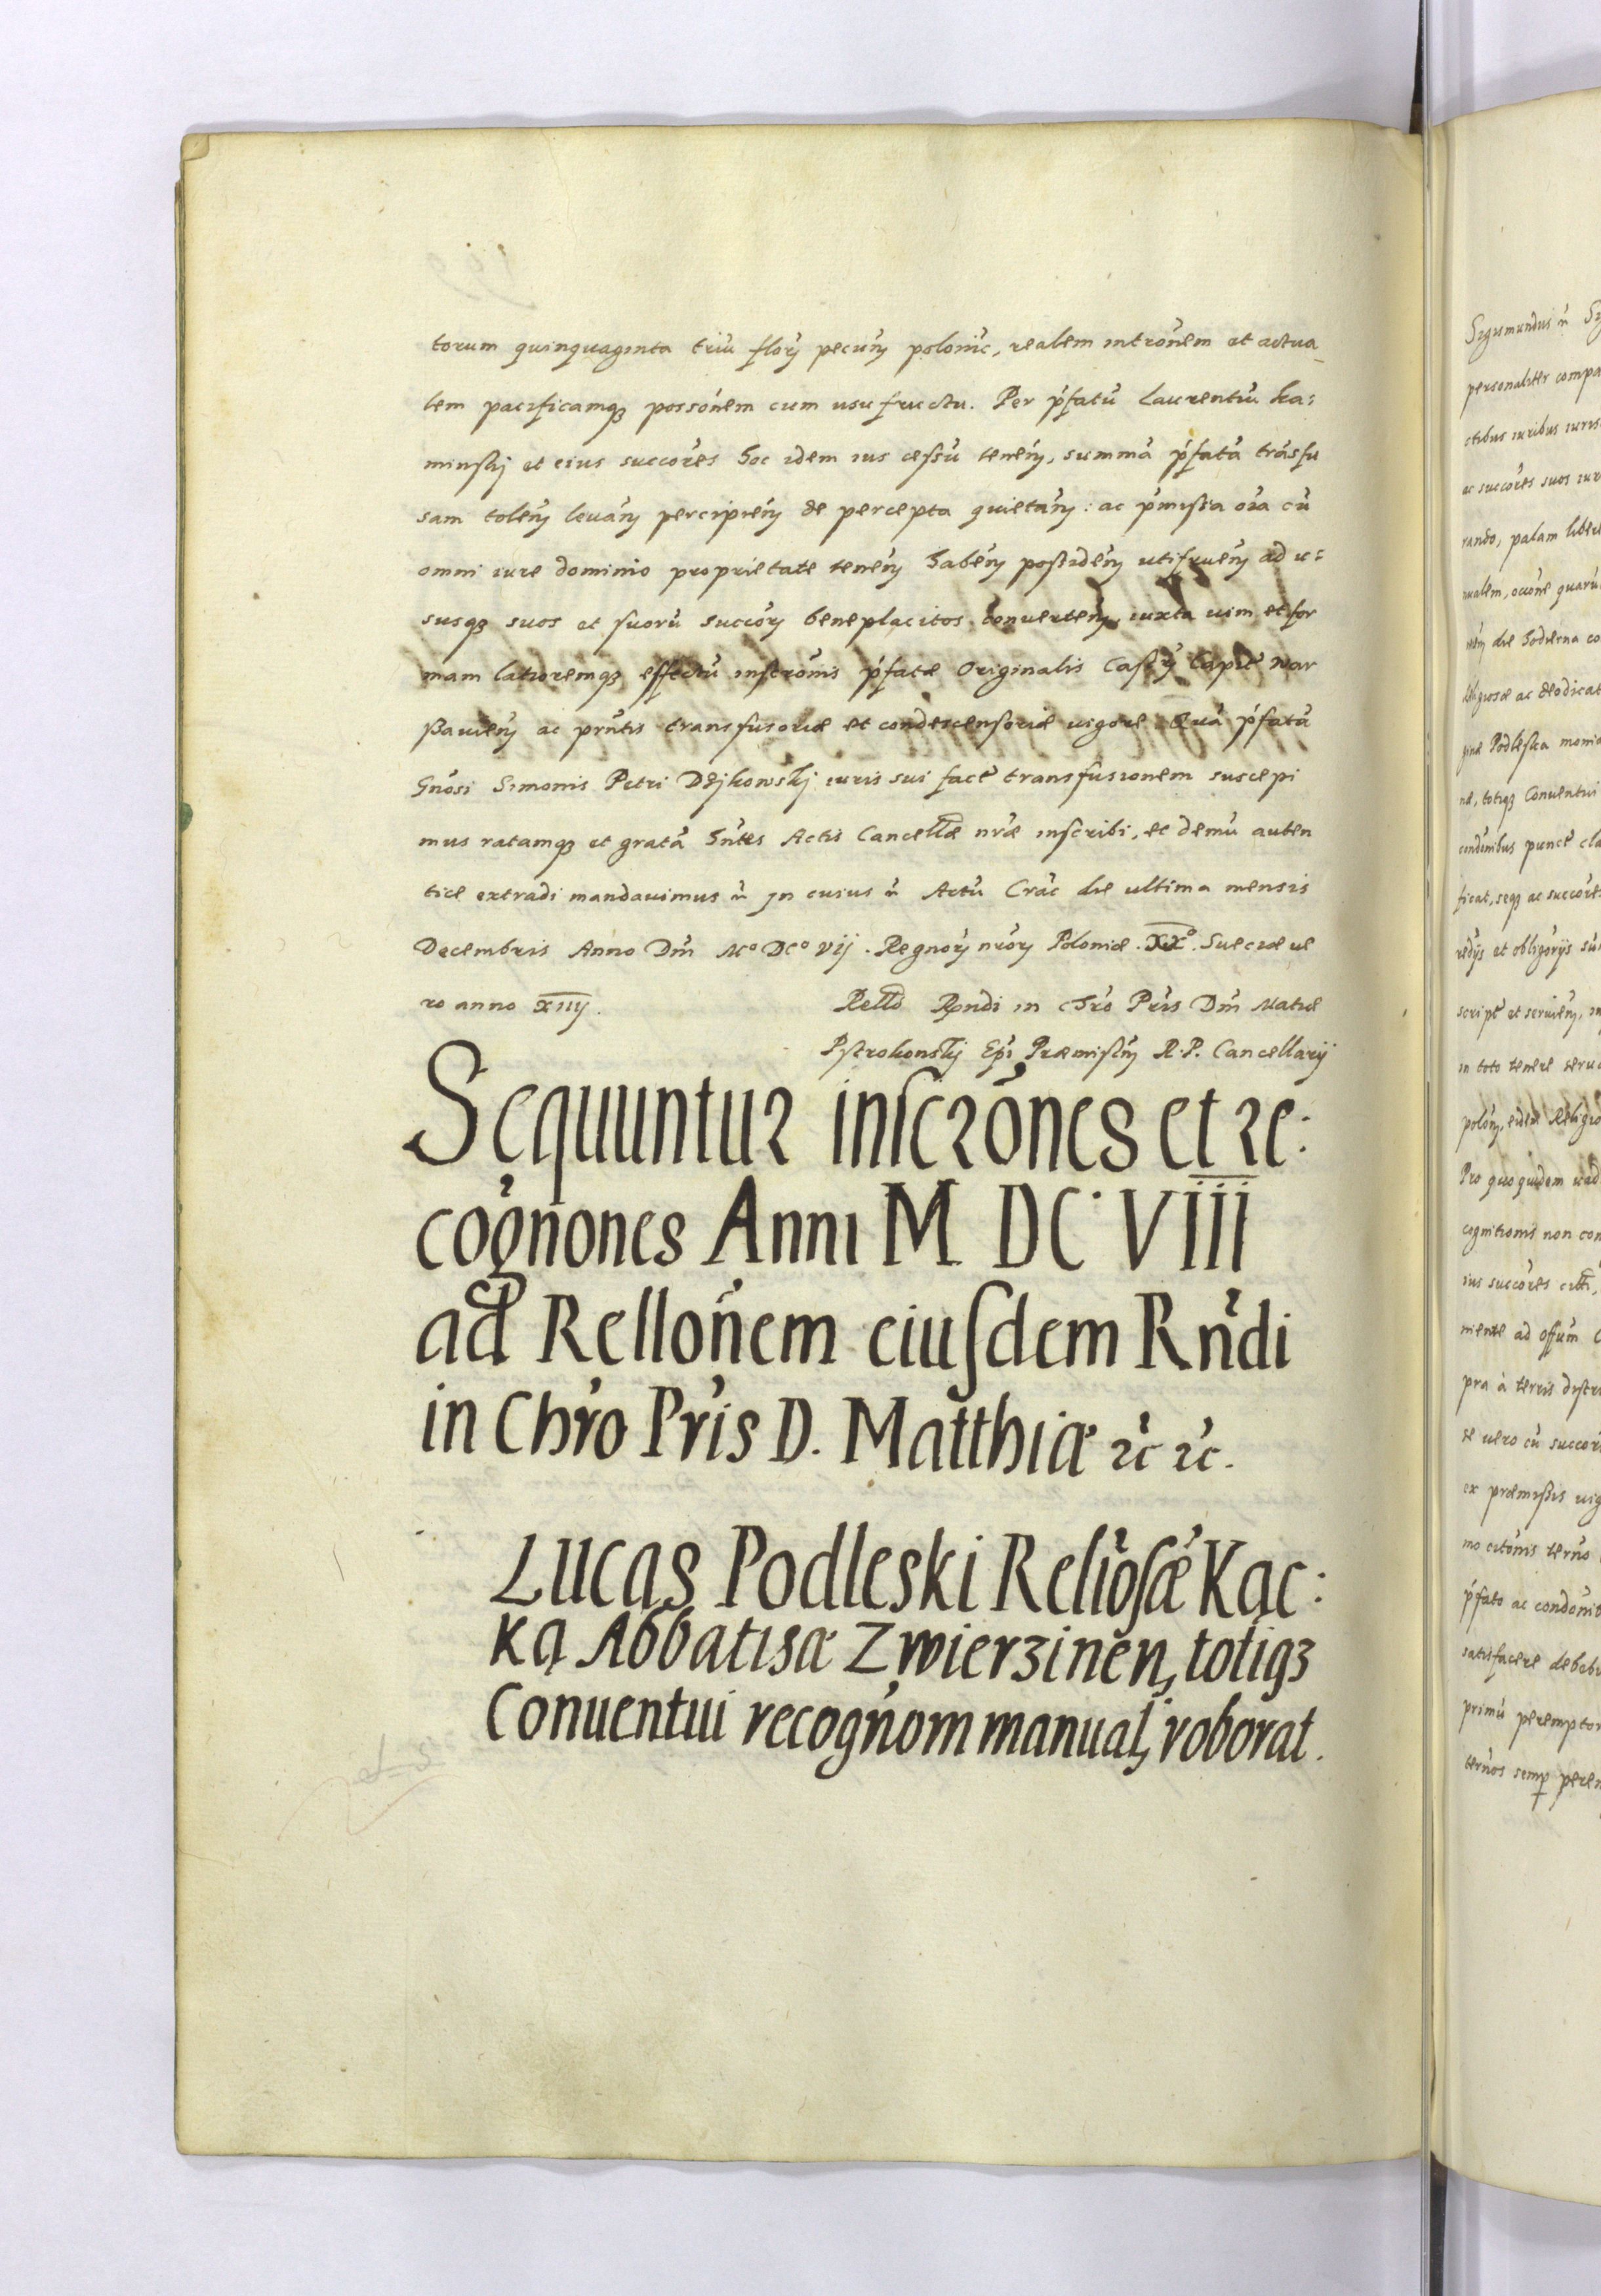 torum quinquaginta triũ florʒ pecunʒ polonic, realem introm̃em et actua
lem pacificamqʒ possonem cum usufructu. Per pfatũ Laurentiũ Ka:
minskj et eius succores hoc idem ius cessũ tenenʒ, summã pfatã trãsfu
sam tolenʒ levanʒ percipienʒ de percepta quietanʒ: ac pmissa oĩa cũ
omni iure dominio proprietate tenenʒ habenʒ possidenʒ utifruenʒ ad u:
susqʒ suos et suorũ succorʒ beneplacitos convertenʒ, iuxta vim et for
mam latioremqʒ effectũ inscronis pfatæ Originalis Castrʒ Capit War
ßavienʒ ac prntis transfusoriæ et condescensoriæ vigore. Quã pfatã
Gnosi Simonis Petri Dzjkowskj iuris sui fact transfusionem suscepi
mus ratamqʒ et gratã hñtes Actis Cancellæ nræ inscribi, et demũ auten
tice extradi mandavimus ñ Jn cuius ñ Actũ Crac die ultima mensis
Decembris Anno Dm̃ Mº DCº vij. Regnorʒ nrorʒ Poloniæ. XXº. Sueciæ ve
ro anno xiiij.
Rello Rñdi in Chro Pris Dm̃ Matiæ
Pstrokonskj Epi Præmislʒ R. P. Cancellarij
Sequuntur inscrones et re:
cognones Anni M DC VIII
ad Rellonem eiusdem Rndi
in Chro Pris D. Matthiæ ꝛc ꝛc.
Lucas Podleski Reliosæ Kąc:
ką Abbatisæ Zwierzinen, totiqʒ
Conuentui recognom manualʒ roborat.
Sigismundus ñ
personaliter compa
ctibus iuribus iuris
ac succores suos iur
rando, palam liber
die hodierna co
ac deodicat
Podleska monia
næ, totiqʒ Conventui
punct cla
ficat, seqʒ ac succores
script et servienʒ, in
in toto tenere
Pro quo quidem vad
cognitionis non con
ius succores
niente ad offum
pra à terris distri
se vero cũ succor
ex præmissis vig
mo citonis terno
pfato ac condonit
satisfacere debebi
primũ perempto
ternos semp perem